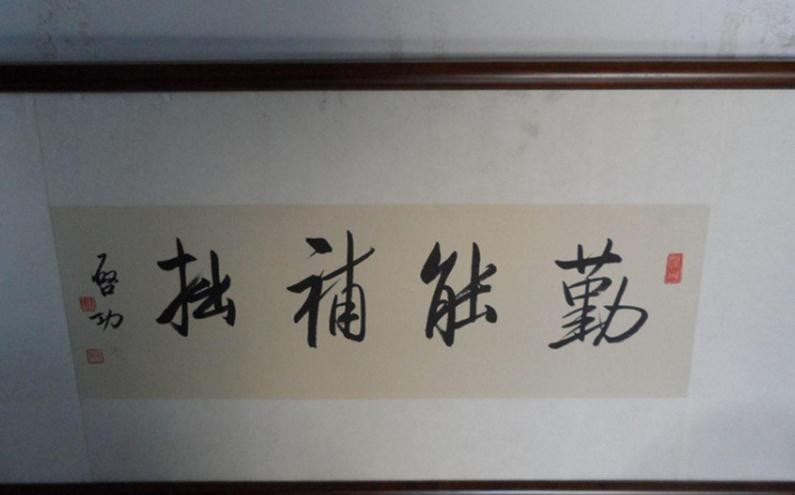 勤能補拙
啓功